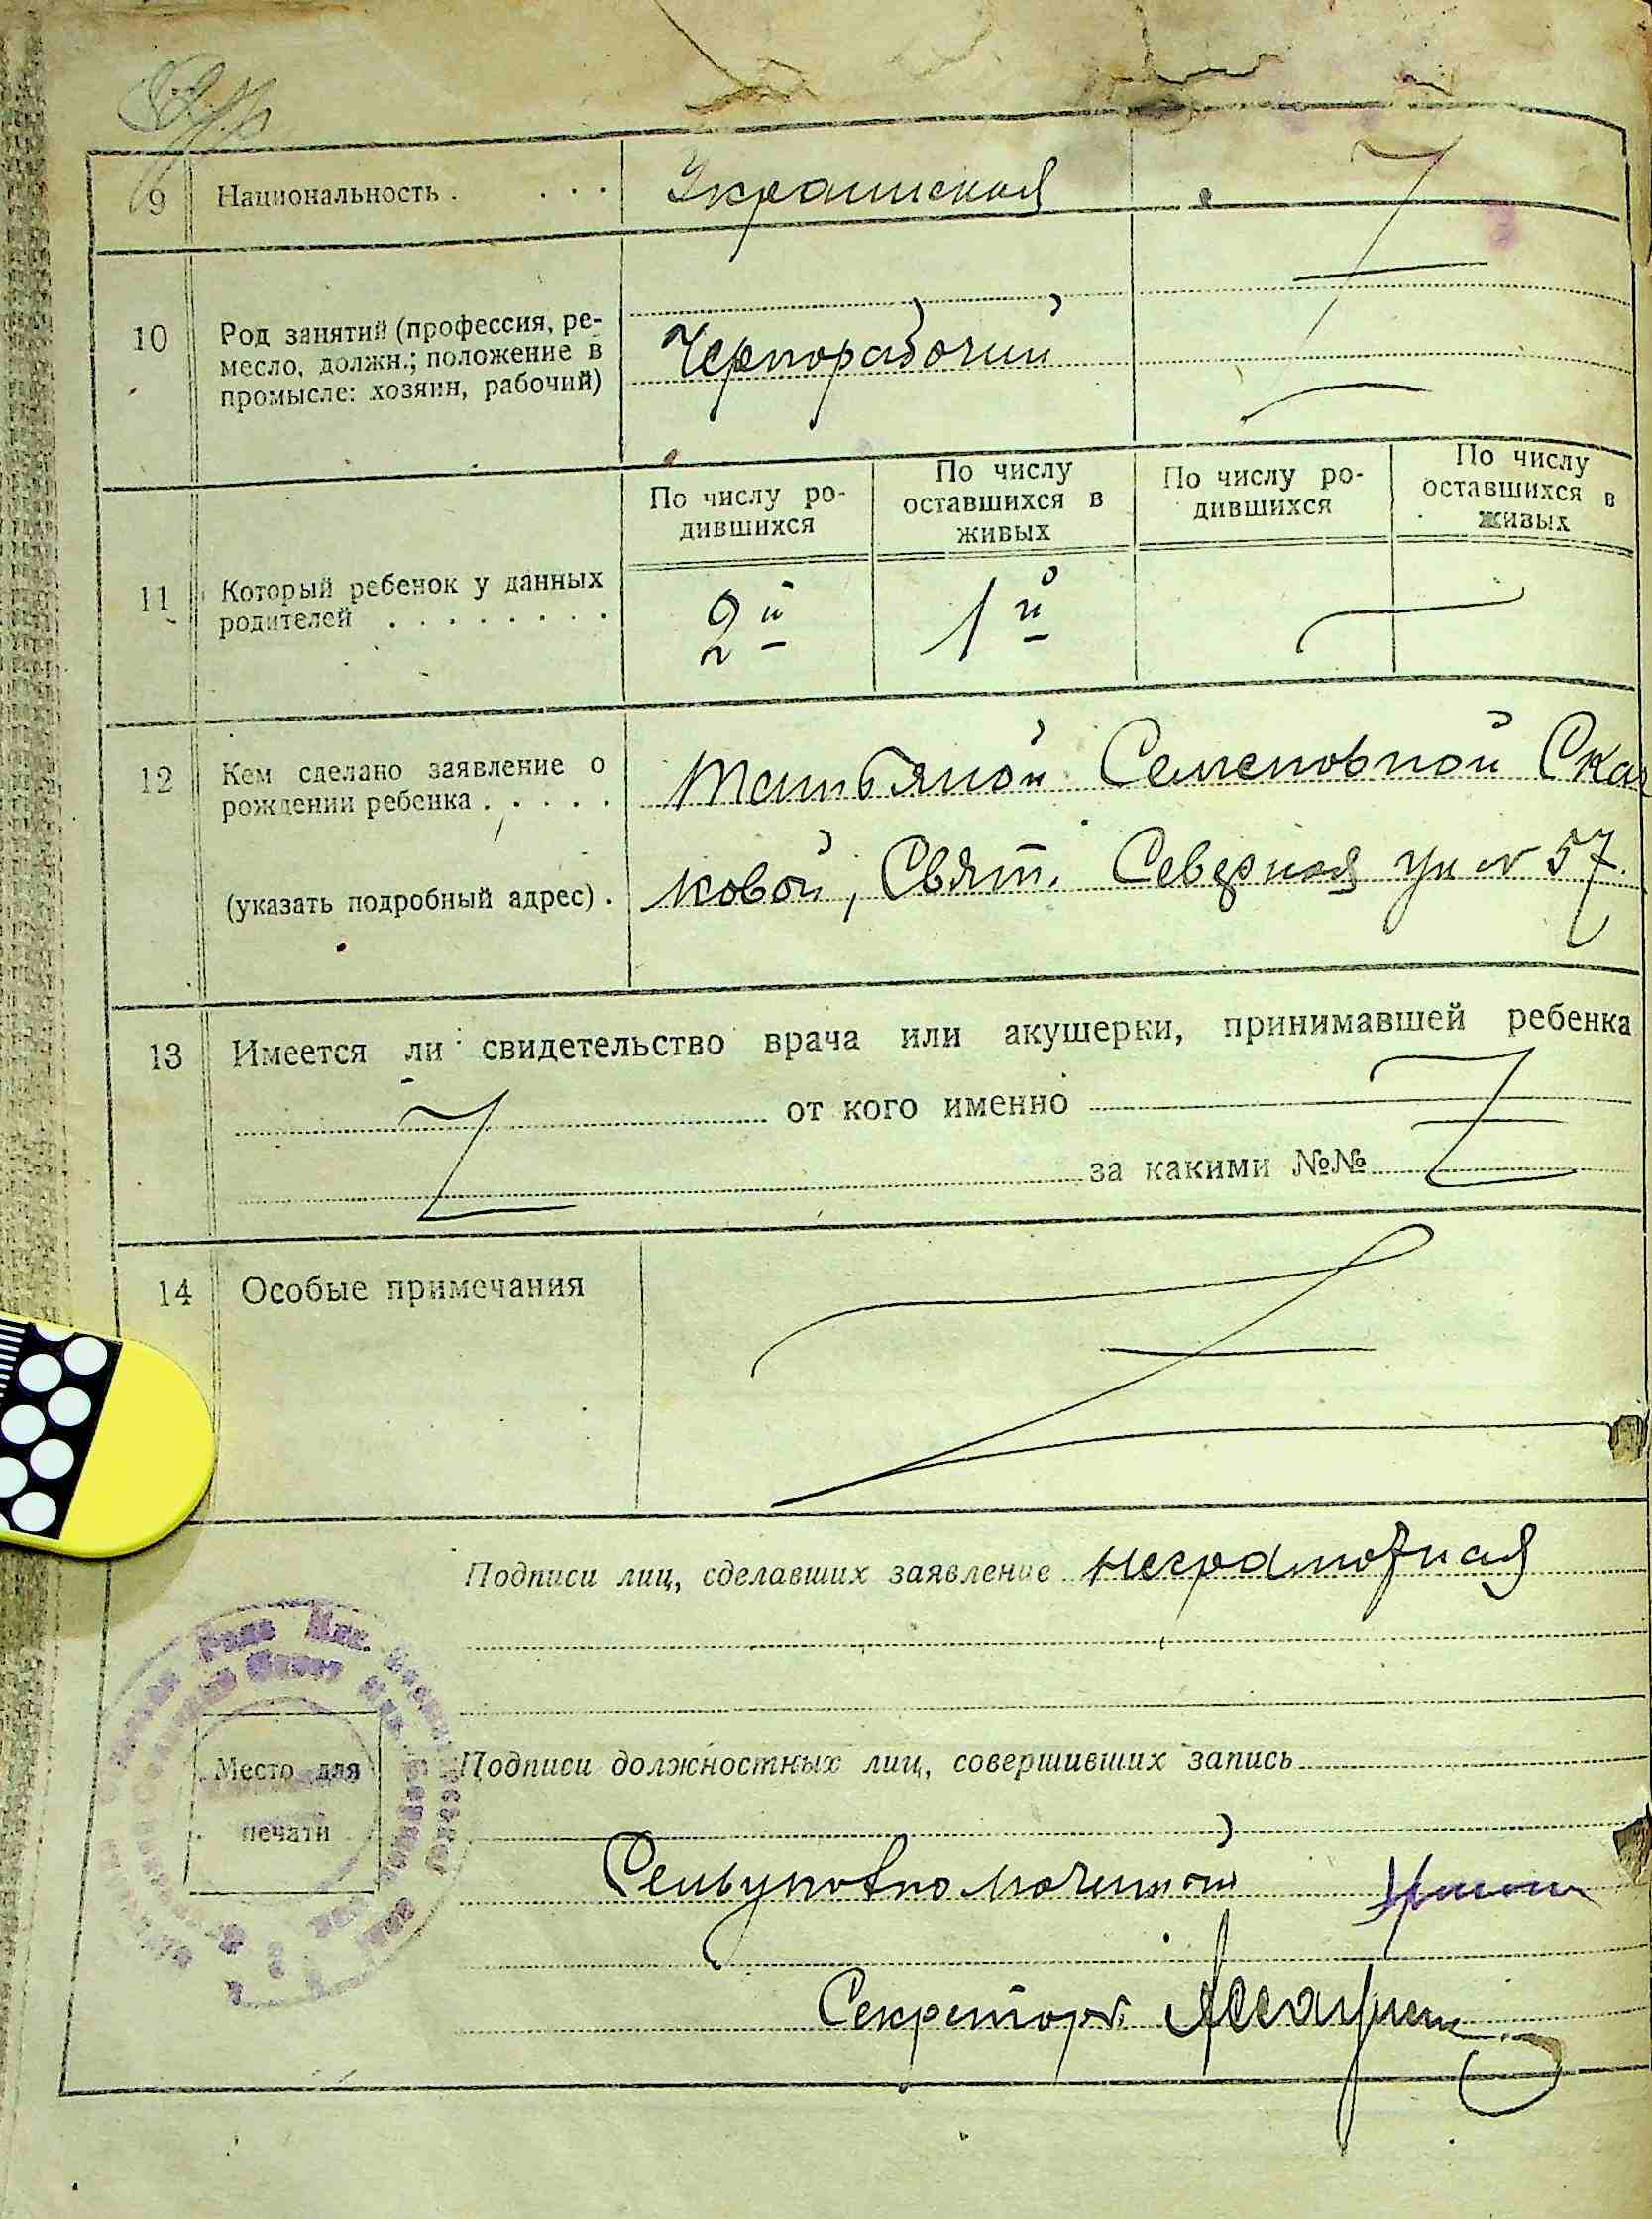 9 Национальность . . . . Украинская
10 Род занятий (профессия, ре-
месло, должн.; положение в
промысле: хозяин, рабочий)
Чернорабочий
По числу ро-
дившихся
По числу
оставшихся в
живых
По числу ро-
дившихся
По числу
оставшихся в
живых
11 Который ребенок у данных
родителей . . . . . . . .
2й 1й
12 Кем сделано заявление о
рождении ребенка . . . . .
Татьяной Семеновной Ска
ковой, Свят. Северная ул № 57.
(указать подробный адрес) .
13 Имеется ли свидетельство врача или акушерки, принимавшей ребенка
от кого именно
за какими №№
14 Особые примечания
Подписи лиц, сделавших заявление неграмотная
Место для
печати
Подписи должностных лиц, совершивших запись
Сельуповномоченный
Секретарь